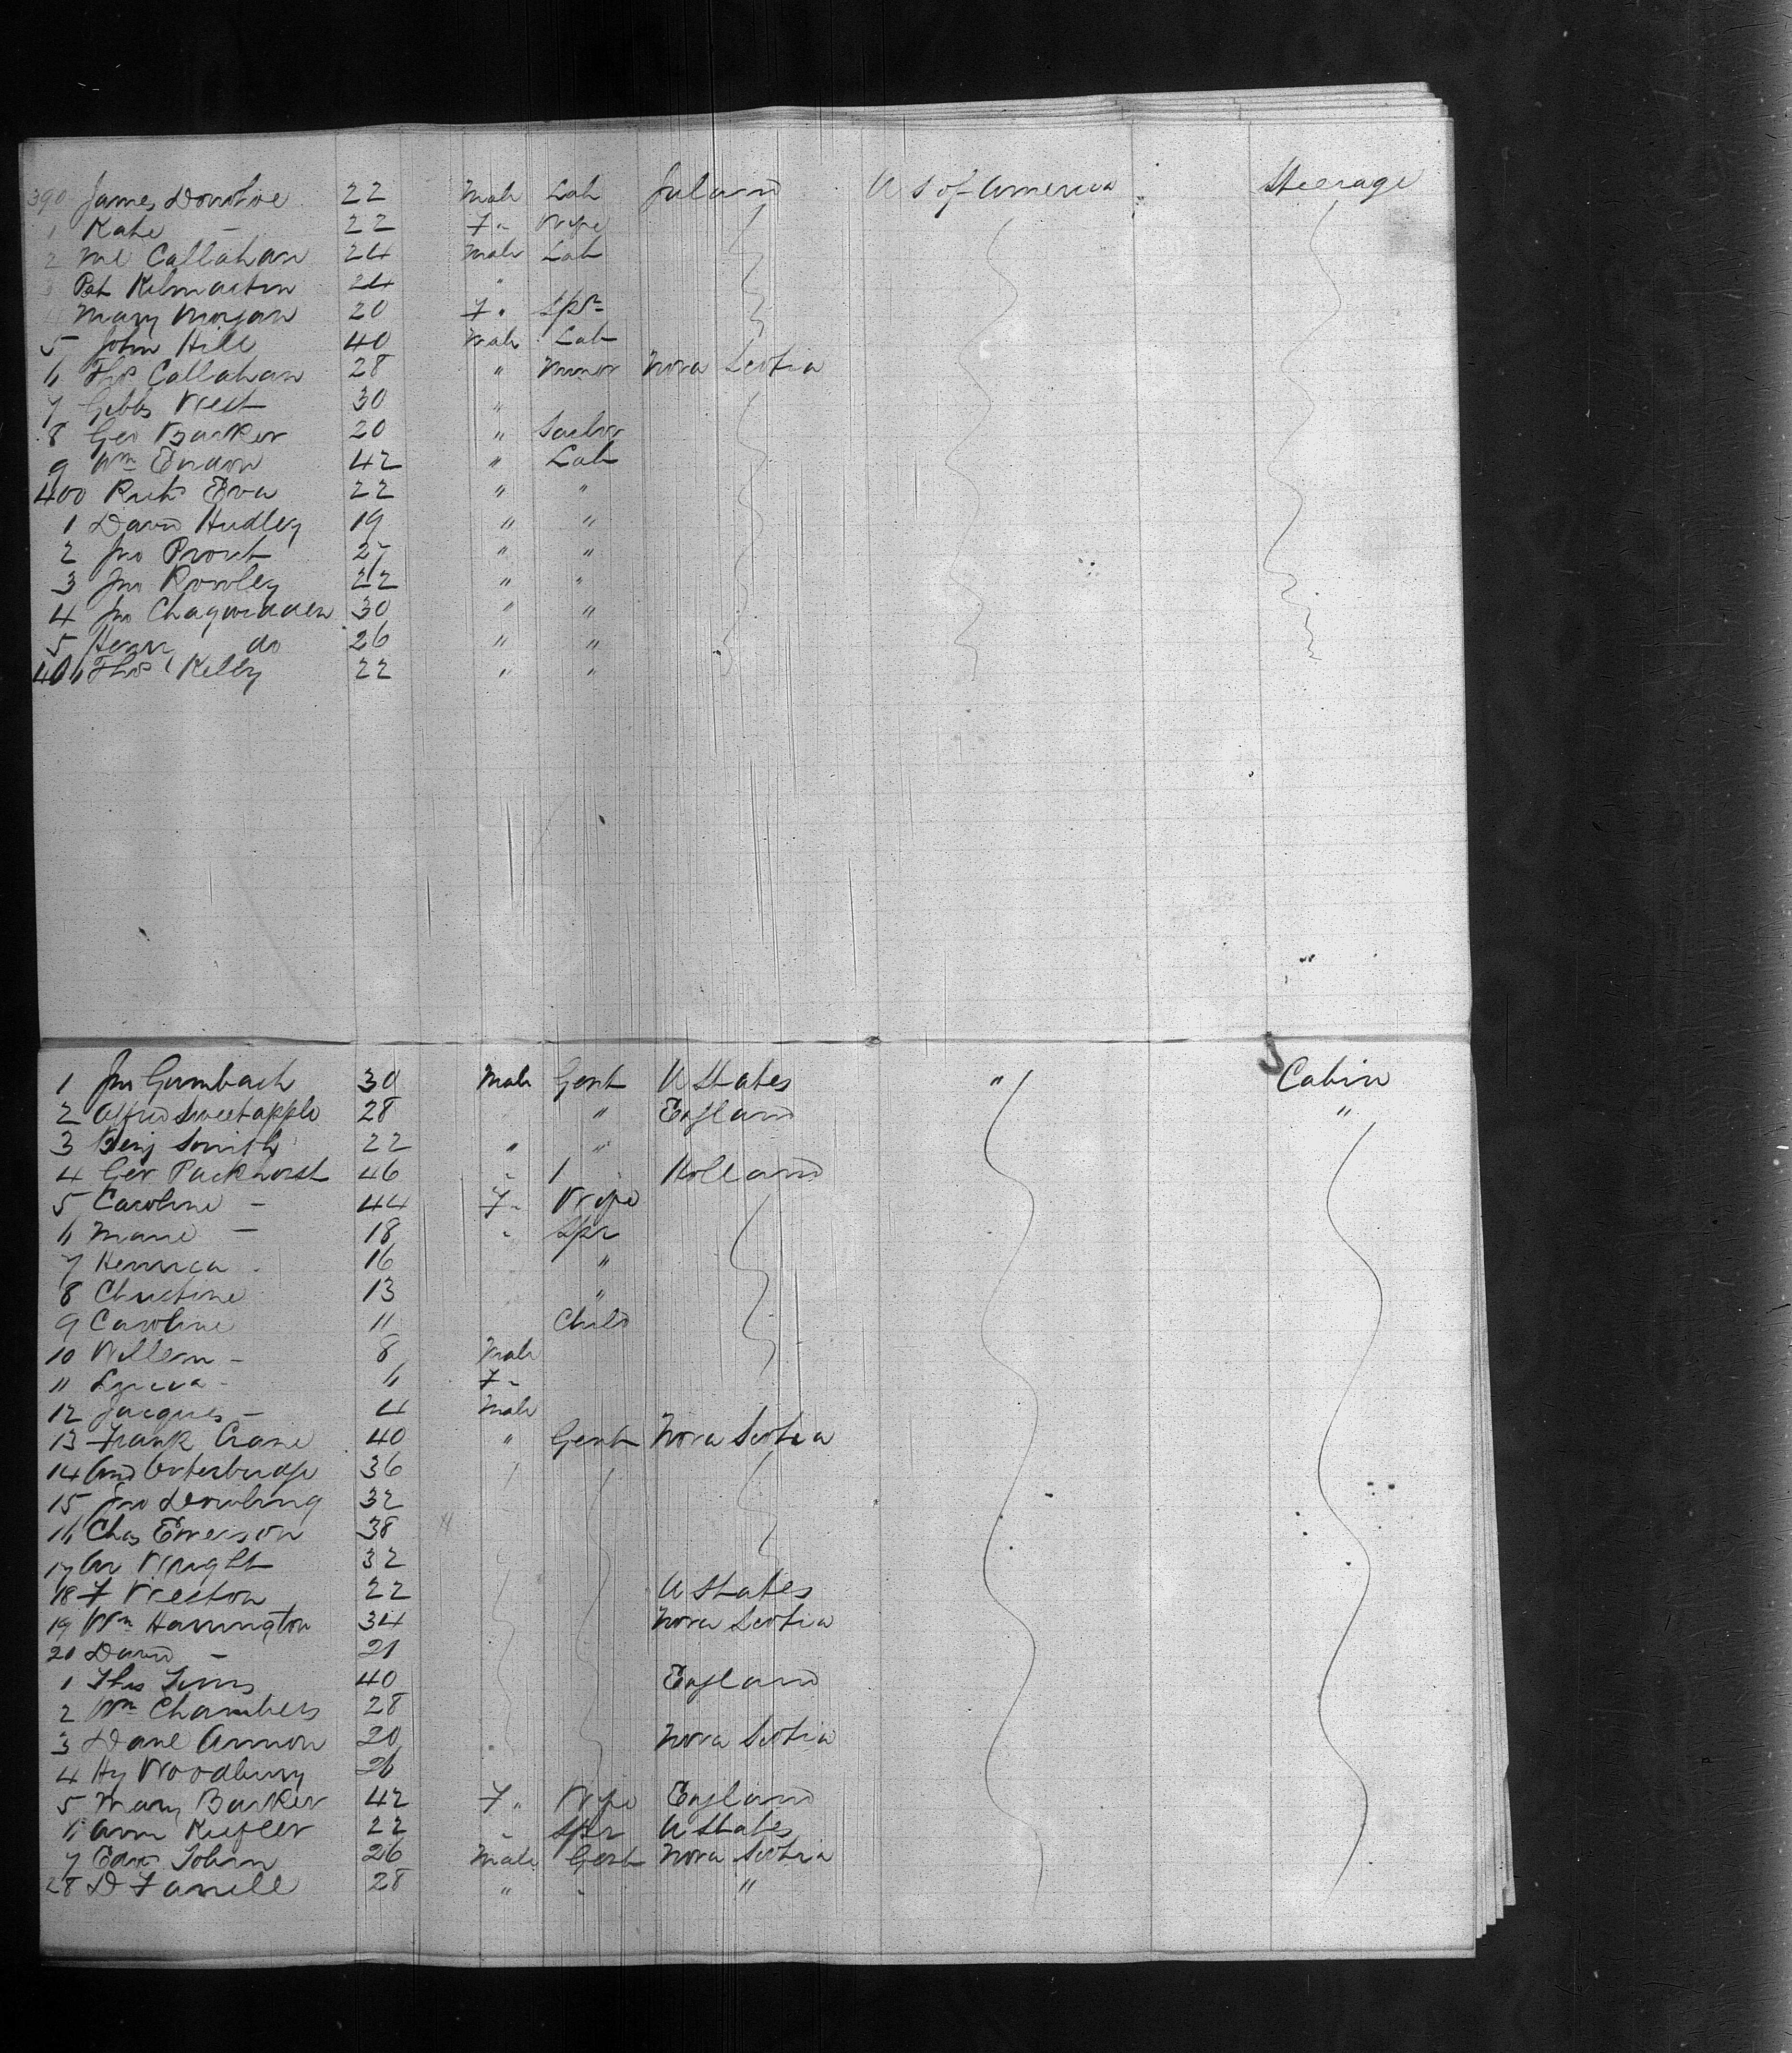 390 James Donohoe 22 Male Lab Ireland U S of America Steerage
1 Kate — 22 F " Wife
2 Ml Callahan 24 Male Lab
3 Pat Kilmartin 24 "
4 Mary Morgan 20 F " Spr
5 John Hill 40 Male Lab
6 Thos Callahan 28 " Minor Nova Scotia
7 Gibbs West 30 "
8 Geo Barker 20 " Sailor
9 Wm 42 " Lab
400 Richd Eva 22 " "
1 David Hudley 19 " "
2 Jno Prout 27 " "
3 Jno Rowley 22 " "
4 Jno Chagwidden 30 " "
5 Henry do 26 " "
406 Thos Kelly 22 " "
1 Jno Gumbach 30 Male Gent U States " Cabin
2 Alfred Sweetapple 28 " England "
3 Benj Smith 22 " "
4 Ger Packhorst 46 " Holland
5 Caroline — 44 F " Wife
6 Marie — 18 " Spr
7 Henrica - 16 "
8 Christine 13 "
9 Caroline 11 Child
10 Willem - 8 Male
11 - 6 F "
12 Jacques - 4 Male
13 Frank Crane 40 " Gent Nova Scotia
14 And Outerbridge 36
15 Jno Dowling 32
16 Chas Everson 38
17 Wright 32
18 F Weston 22 U States
19 Wm Harrington 34 Nova Scotia
20 David — 21
1 Thos 40 England
2 Wm Chambers 28
3 Danl Annon 20 Nova Scotia
4 Hy Woodbury 26
5 Mary Barker 42 F " Wife England
6 Ann 22 " Spr U States
7 Edwd Tobin 26 Male Gent Nova Scotia
28 D Farrell 28 " " "